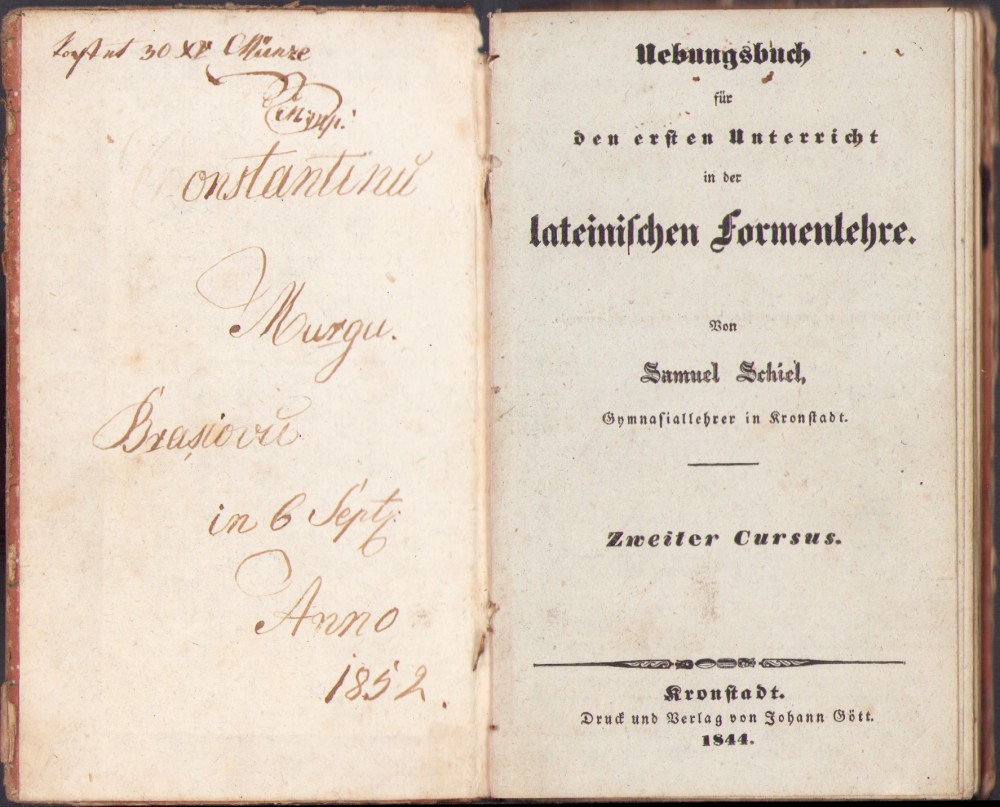 kostet 30 xr Münze
onstantinŭ
Murgu.
Brașiovŭ
in 6 Septj.
Anno
1852.
Uebungsbuch
für
den ersten Unterricht
in der
lateinischen Formenlehre.
Von
Samuel Schiel,
Gymnasiallehrer in Kronstadt.
Zweiter Cursus.
Kronstadt.
Druck und Verlag von Johann Gött.
1844.